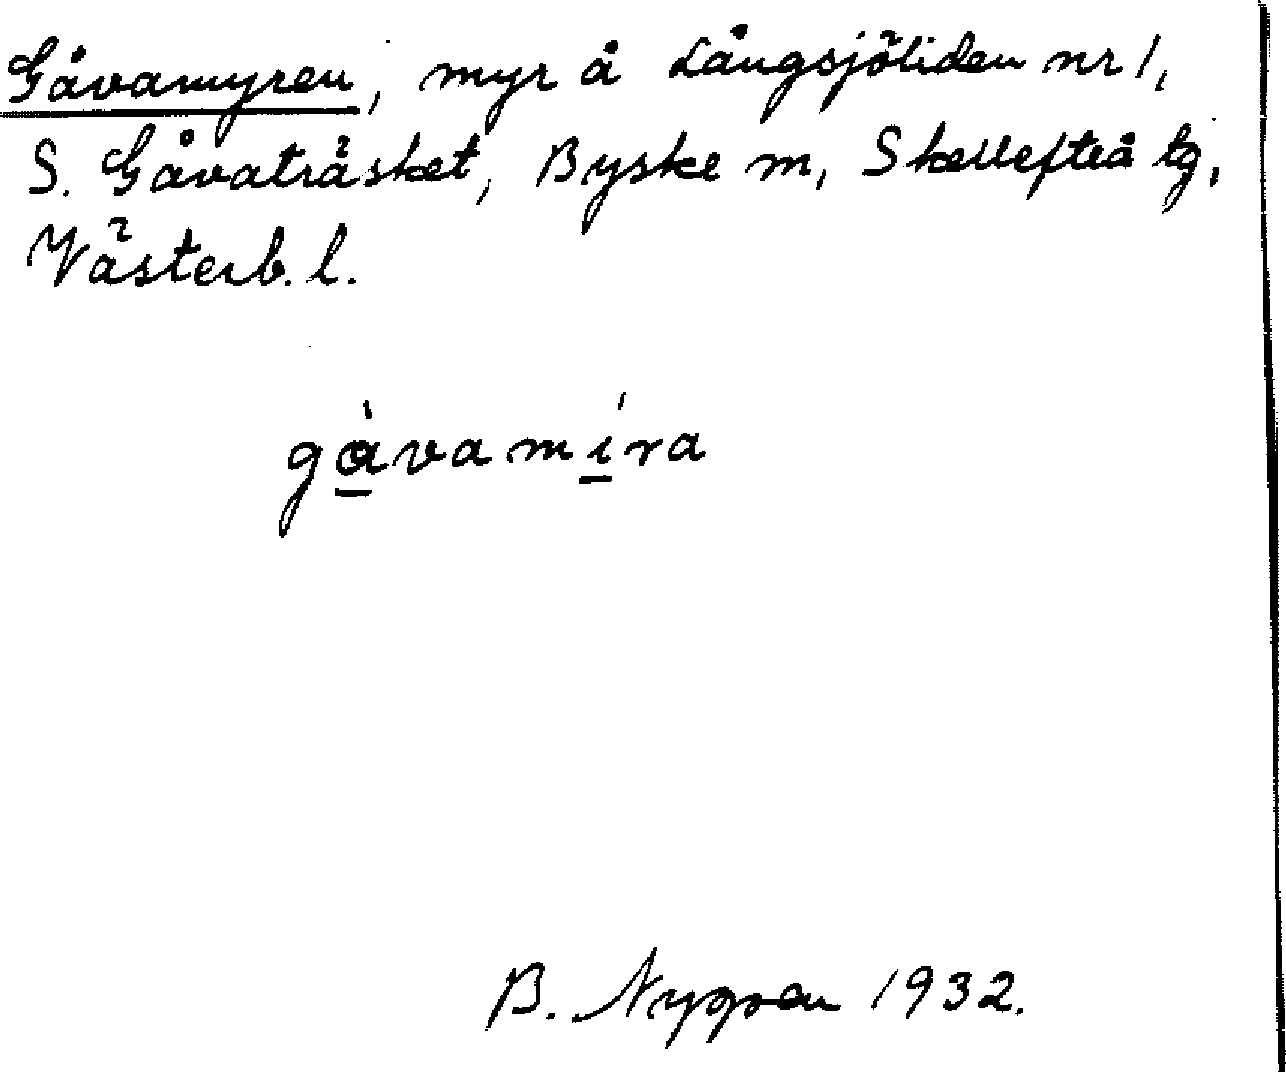 Gåvamyren, myr å Långsjöliden nr 1,
S. Gåvaträsket, Byske m, Skellefteå tg,
Västerb. l.
gàvamíra
B. Nygren 1932.